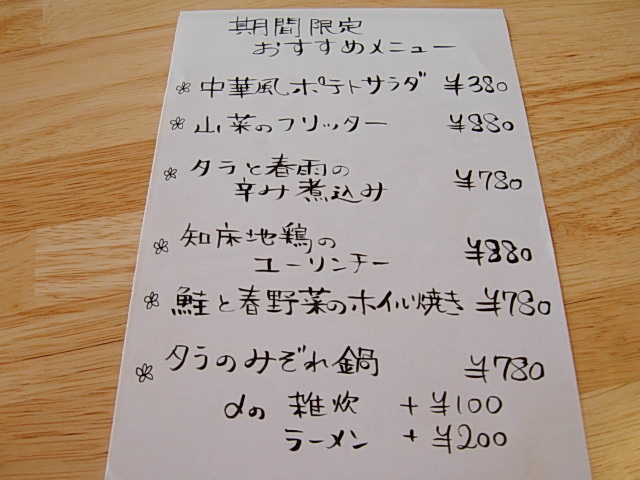 期間限定
おすすめメニュー
中華風ポテトサラダ ¥380
山菜のフリッター ¥880
タラと春雨の
辛み煮込み ¥780
知床地鶏の
ユーリンチー ¥880
鮭と春野菜のホイル焼き ¥780
タラのみぞれ鍋 ¥780
の 雑炊 +¥100
ラーメン +¥200